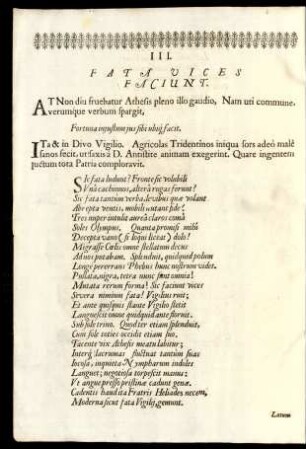 III.
FATA VICES
FACIUNT.
AT Non diu fruebatur Athesis pleno illo gaudio, Nam uti commune,
verumque verbum spargit,
Fortuna injustum jus sibi ubiq; facit.
ITa & in Divo Vigilio. Agricolas Tridentinos iniqua sors adeò malè
sanos fecit, ut saxis à D. Antistite animam exegerint. Quare ingentem
jacturam tota Patria comploravit.
Sic fata ludunt? Fronte sic volubili
Unâ cachinnus, alterâ rugas ferunt?
Sic fata tantùm verba, levibus quæ volant
Abrepta ventis, mobili nutant fide?
Tres inper intulit aurea claros comâ
Soles Olympus. Quanta promisi mihi
Decepta vanô, & si loqui liceat, dolô!
Migrasse Cælos omne stellatum decus
Ad nos putabam. Splenduit, quidquid polum
Linqs pererrans Phebus hunc nostrum videt.
Pullata, nigra, tetra nunc sunt omnia!
Mutata rerum forma! Sic faciunt vices
Severa nimium fata! Vigilius ruit;
Et ante quisquis stante Vigilio stetit
Languescit omne quidquid ante floruit.
Sub sole trino. Quod ter etiam splenduit,
Cum sole toties occidit etiam suo.
Tacente vix Athesis meatu labitur;
Interq; lacrumas fluctuat tantùm suas
Incusa, inquieta Nympharum indoles
Languet; negotiosa torpescit manus;
Ut angue presso pristinæ cadunt genæ.
Cadentis haud ita Fratris Heliades necem,
Moderna sicut fata Vigilij, gemunt.
Latum